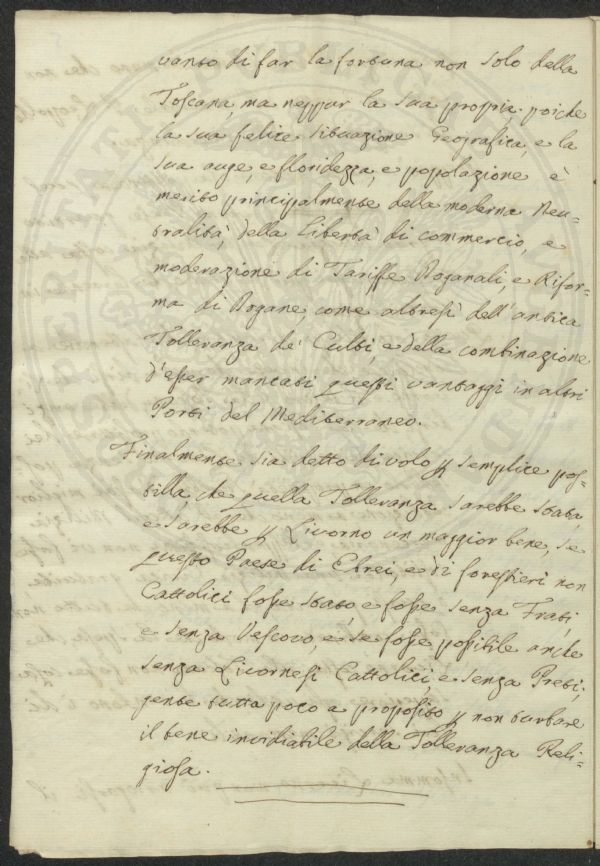 vanto di far la fortuna non solo della
Toscana, ma neppur la sua propria, poiche
la sua felice situazione Geografica, e la
sua auge, e floridezza, e popolazione è
merito principalmente della moderna Neu-
tralità, della Libertà di commercio, e
moderazione di Tariffe Doganali, e Rifor-
ma di Dogane, come altresì dell'antica
Tolleranza de' Culti, e della combinazione
d'esser mancati questi vantaggi in altri
Porti del Mediterraneo.
Finalmente sia detto di volo p semplice pos-
tilla, che quella Tolleranza sarebbe stata,
e sarebbe p Livorno un maggior bene, se
questo Paese di Ebrei, e di forestieri non
Cattolici fosse stato, e fosse senza Frati,
e senza Vescovo, e se fosse possibile anche
senza Livornesi Cattolici, e senza Preti,
gente tutta poco a proposito p non turbare
il bene invidiabile della Tolleranza Reli-
giosa.